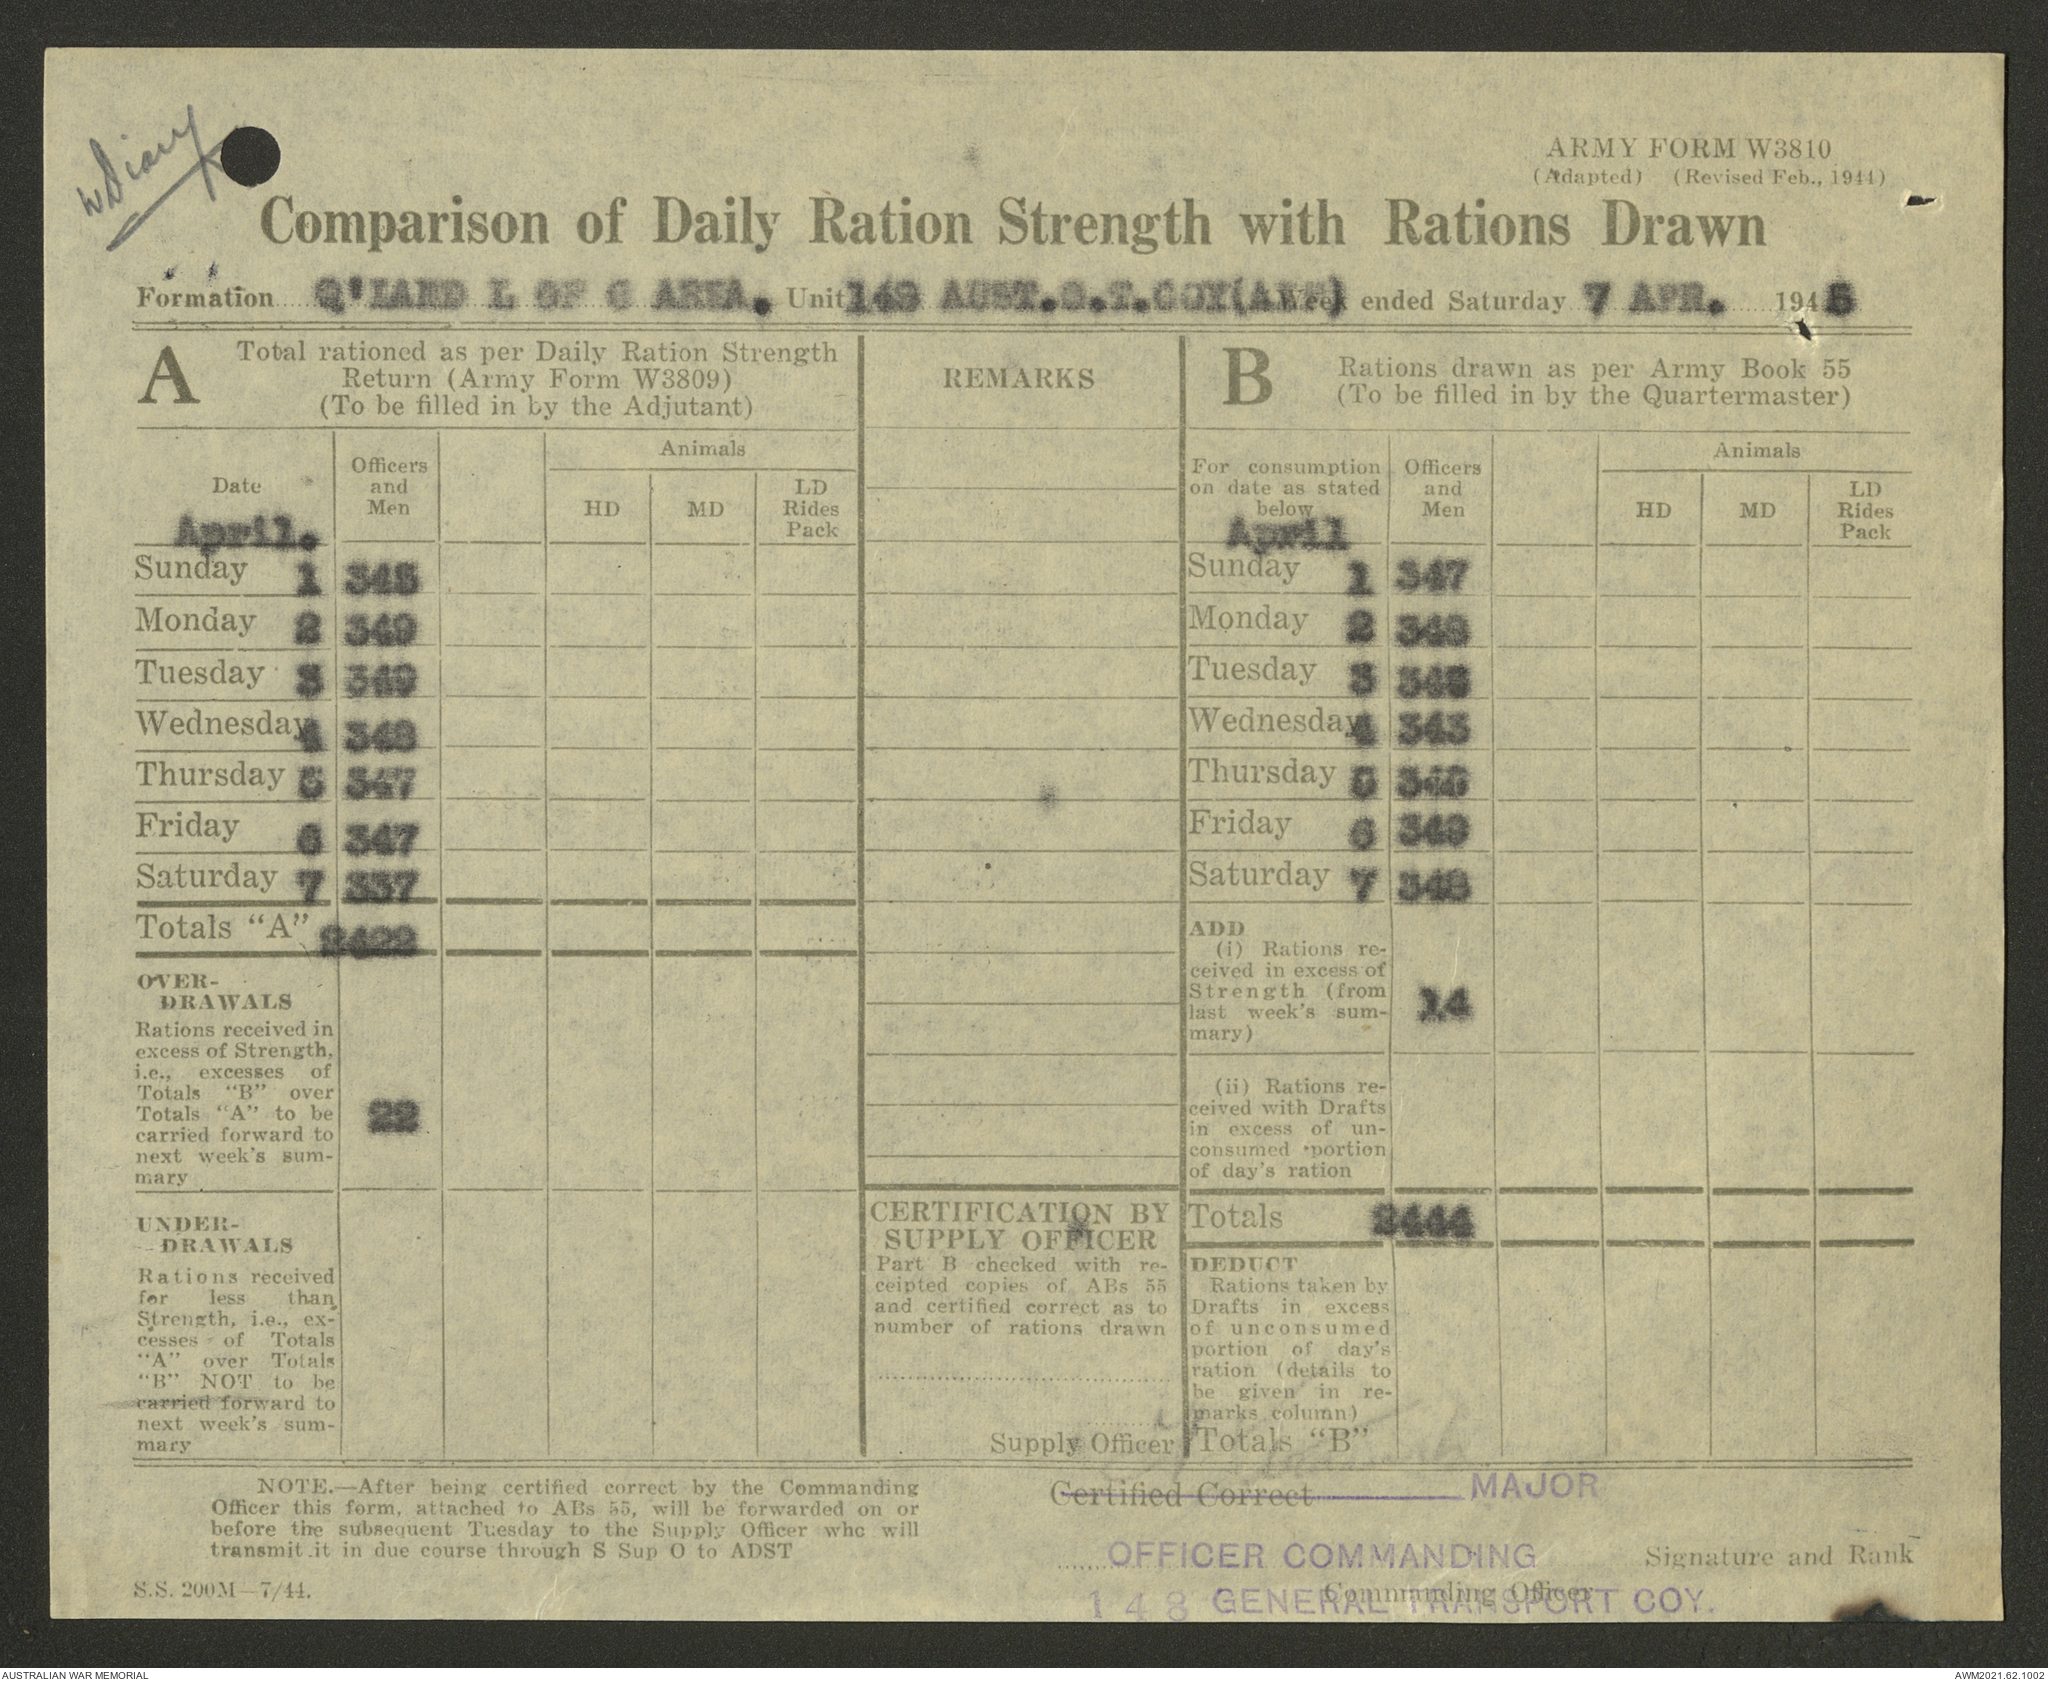 wDiary
ARMY FORM W3810
(Adapted) (Revised Feb., 1944)
Comparison of Daily Ration Strength with Rations Drawn
Formation Q'LAND L OF C AREA. Unit 148 AUST.G.T.COY(AIF) Week ended Saturday 7 APR. 1945
A Total rationed as per Daily Ration Strength
Return (Army Form W3809)
(To be filled in by the Adjutant)
Date
April.
Officers
and
Men
Animals
HD
MD
LD
Rides
Pack
Sunday 1 345
Monday 2 349
Tuesday 3 349
Wednesday 4 348
Thursday 5 347
Friday 6 347
Saturday 7 337
Totals "A" 2422
OVER-
DRAWALS
Rations received in
excess of Strength,
i.e., excesses of
Totals "B" over
Totals "A" to be
carried forward to
next week's sum-
mary
22
UNDER-
DRAWALS
Rations received
for less than
Strength, i.e., ex-
cesses of Totals
"A" over Totals
"B" NOT to be
carried forward to
next week's sum-
mary
REMARKS
CERTIFICATION BY
SUPPLY OFFICER
Part B checked with re-
ceipted copies of ABs 55
and certified correct as to
number of rations drawn
Supply Officer
B Rations drawn as per Army Book 55
(To be filled in by the Quartermaster)
For consumption
on date as stated
below
April
Officers
and
Men
Animals
HD
MD
LD
Rides
Pack
Sunday 1 347
Monday 2
Tuesday 3
Wednesday 4 343
Thursday 5
Friday 6 349
Saturday 7 348
ADD
(i) Rations re-
ceived in excess of
Strength (from
last week's sum-
mary)
14
(ii) Rations re-
ceived with Drafts
in excess of un-
consumed portion
of day's ration
Totals 2444
DEDUCT
Rations taken by
Drafts in excess
of unconsumed
portion of day's
ration (details to
be given in re-
marks column)
Totals "B"
NOTE.—After being certified correct by the Commanding
Officer this form, attached to ABs 55, will be forwarded on or
before the subsequent Tuesday to the Supply Officer who will
transmit it in due course through S Sup O to ADST
S.S. 200M—7/44.
Certified Correct MAJOR
OFFICER COMMANDING Signature and Rank
Commanding Officer
148 GENERAL TRANSPORT COY.
AUSTRALIAN WAR MEMORIAL
AWM2021.62.1002